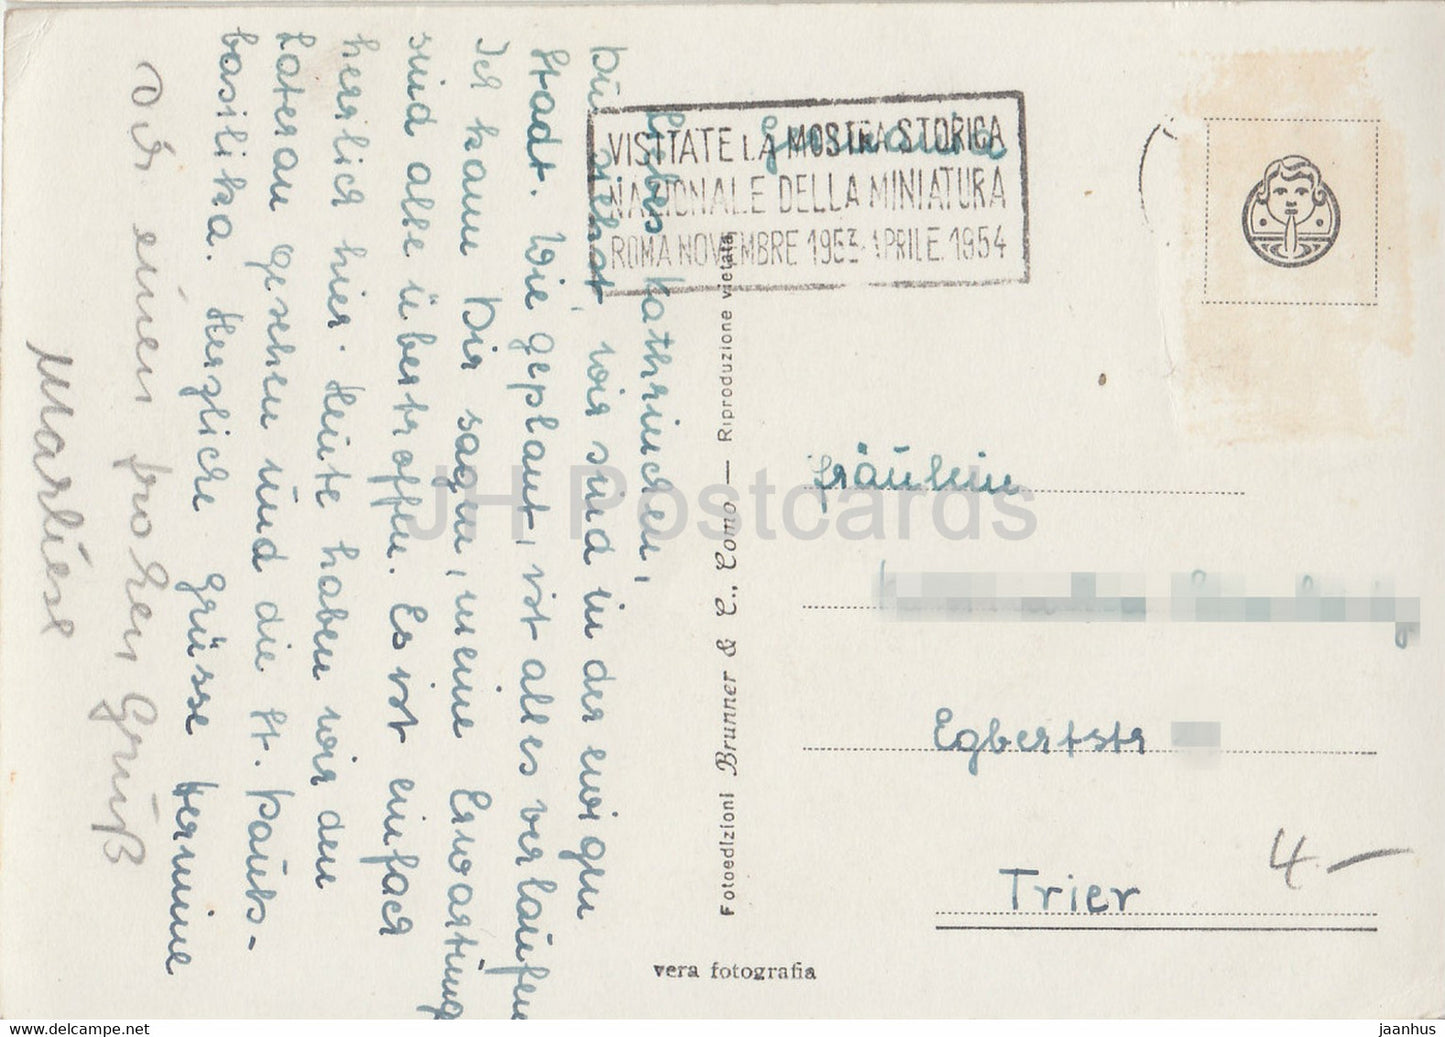 Liebes Kathrinchen,
Du siehst, wir sind in der ewigen
Stadt. Wie geplant, ist alles verlaufen
Ich kann Dir sagen, meine Erwartung
sind alle übertroffen. Es ist einfach
herrlich hier. Heute haben wir den
Lateran gesehen und die St. Pauls-
basilika. Herzliche Grüsse Hermine
Dir einen frohen Gruß
Marliese
VISITATE LA MOSTRA STORICA
NAZIONALE DELLA MINIATURA
ROMA NOVEMBRE 1953-APRILE 1954
Fotoedizioni Brunner & C., Como — Riproduzione vietata
Fräulein
Egbertstr
Trier
4.-
vera fotografia
JH Postcards
www.delcampe.net
jaanhus